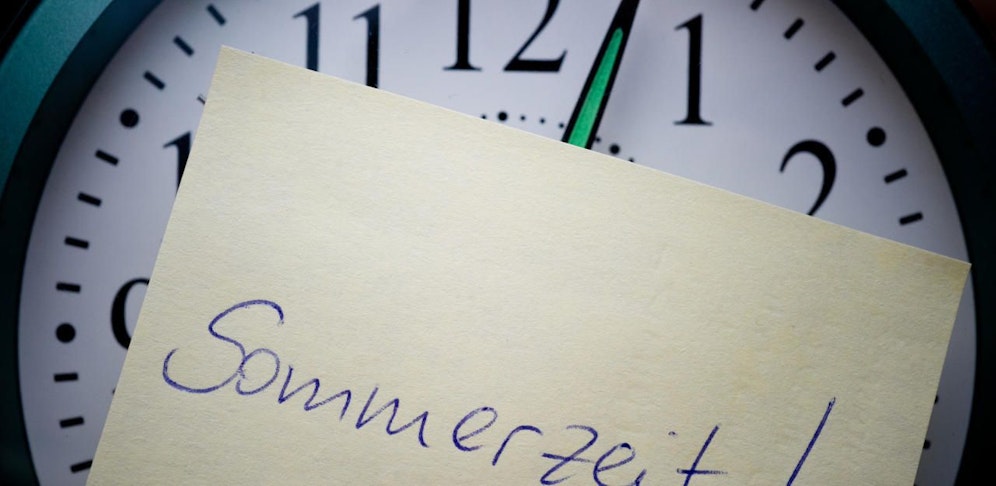 11 12 1
2
Sommerzeit!